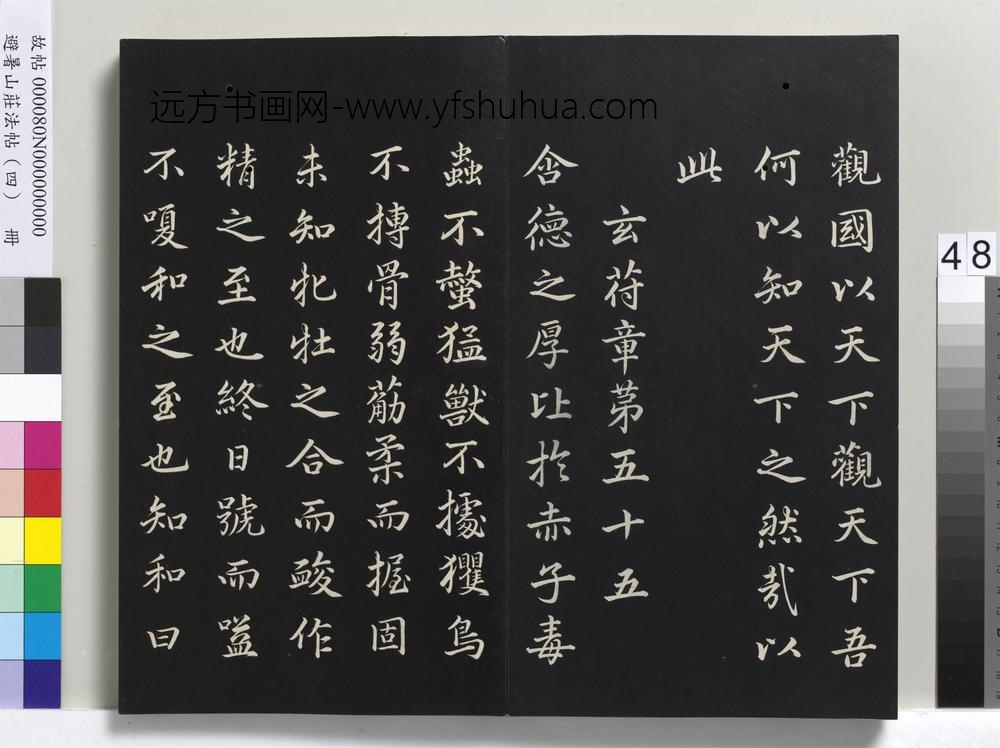 觀國以天下觀天下吾
何以知天下之然哉以
此
玄符章第五十五
含德之厚比於赤子毒
蟲不螫猛獸不據玃鳥
不搏骨弱筋柔而握固
未知牝牡之合而酸作
精之至也終日號而嗌
不嗄和之至也知和曰
远方书画网-www.yfshuhua.com
故帖000080N000000000
避暑山莊法帖(四) 冊
48